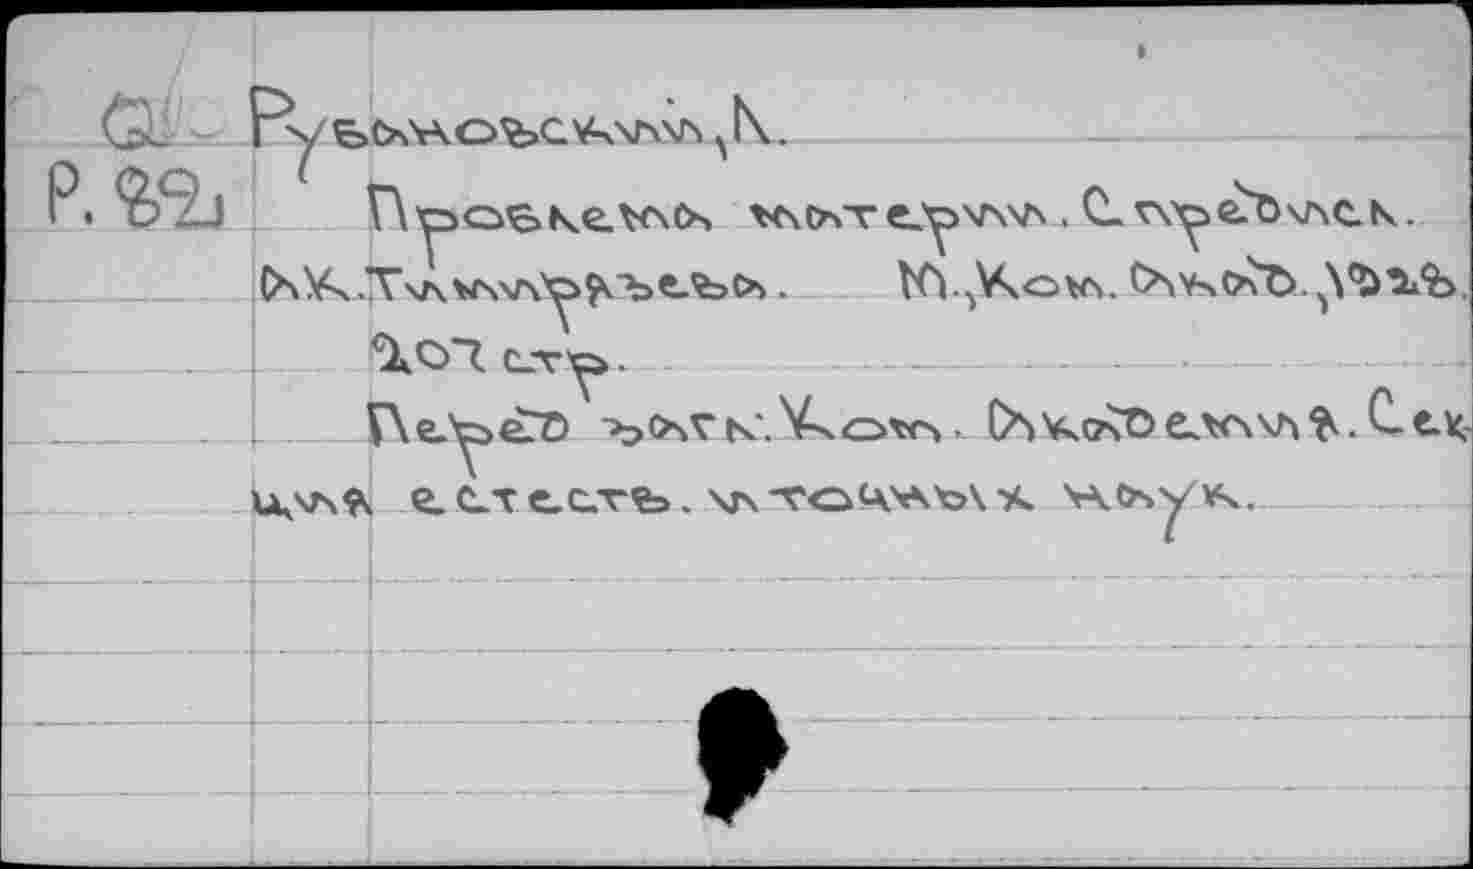 Рубановский, Л.
Р.82 Проблема материи. С предисл.
А.К. Тимирязева. М., Ком. акад., 1928.
207 стр.
Перед загл: Ком. Академия. Сек-
ция естеств. и точных наук.